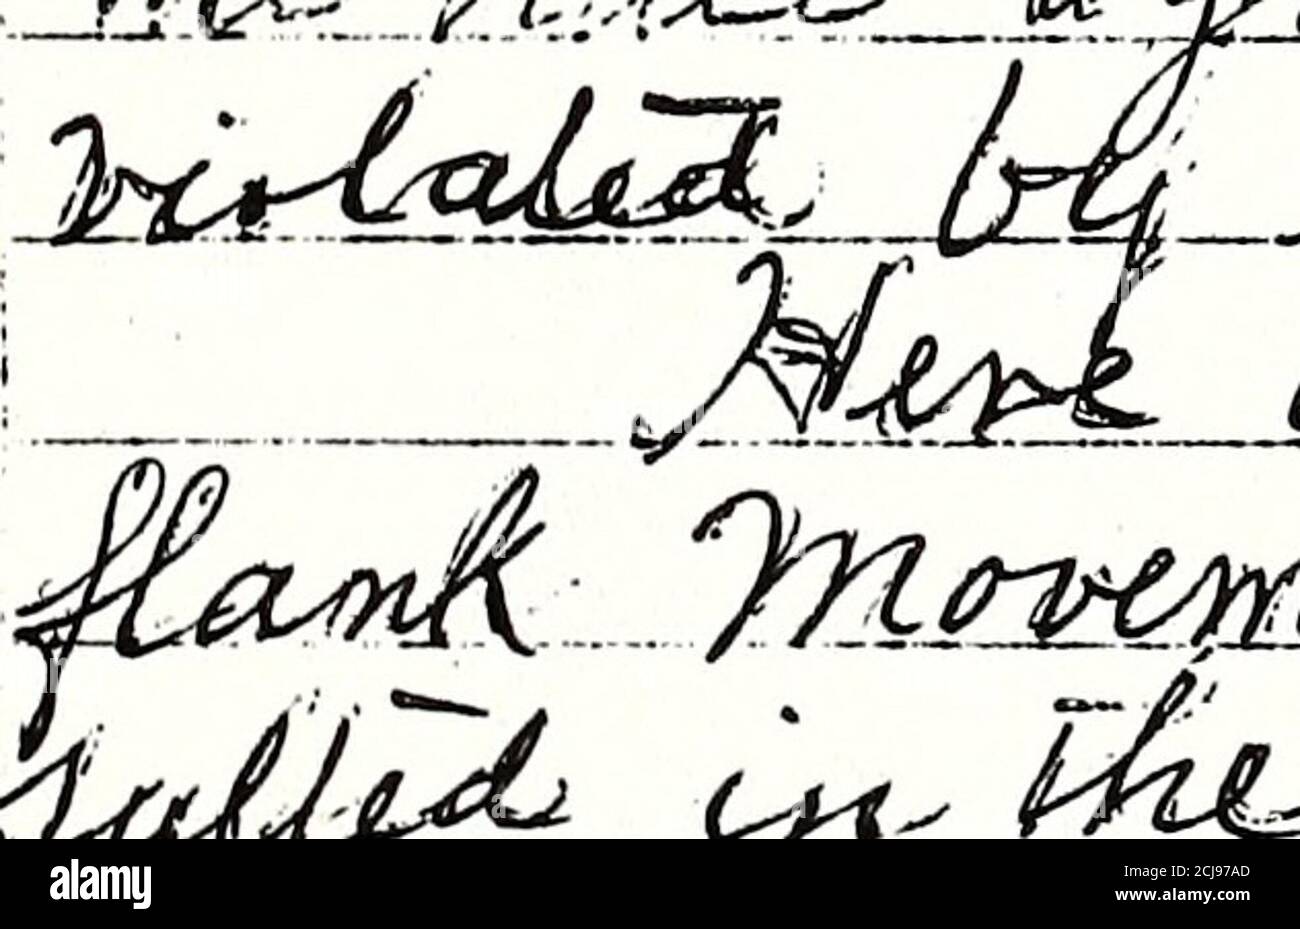 violated by
Here
flank Movem
sulted in the
alamy
Image ID: 2CJ97AD
www.alamy.com